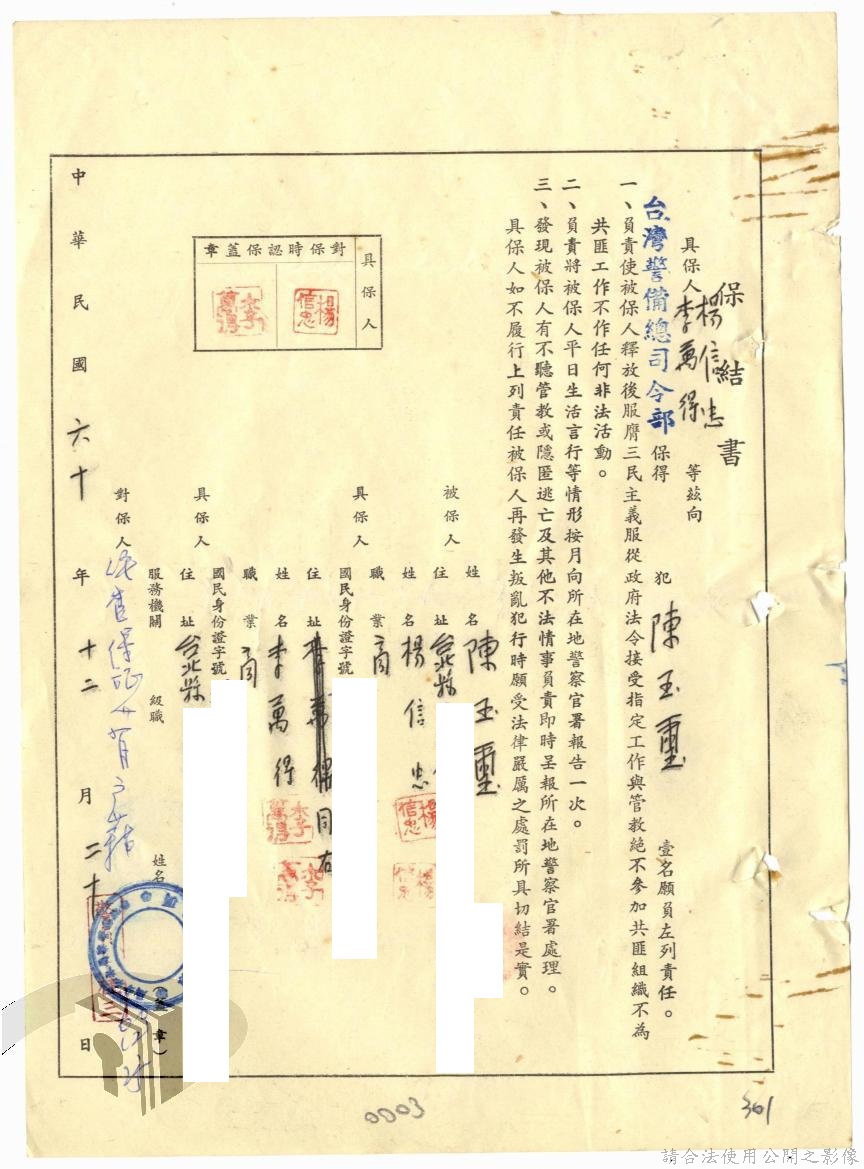 保結書
具保人 楊信忠
李萬得 等茲向
台灣警備總司令部保得 犯 陳玉璽 壹名願負左列責任。
一、負責使被保人釋放後服膺三民主義服從政府法令接受指定工作與管教絕不參加共匪組織不為
共匪工作不作任何非法活動。
二、負責將被保人平日生活言行等情形按月向所在地警察官署報告一次。
三、發現被保人有不聽管教或隱匿逃亡及其他不法情事負責即時呈報所在地警察官署處理。
具保人如不履行上列責任被保人再發生叛亂犯行時願受法律嚴厲之處罰所具切結是實。
被保人 姓名 陳玉璽
住址 台北縣
具保人 姓名 楊信忠
楊信忠
職業 商
國民身份證字號
住址 同右
具保人 姓名 李萬得
李萬得
職業 商
國民身份證字號
住址 台北縣
對保人 服務機關 級職 姓名 (蓋章)
具保人
對保時認保蓋章
楊信忠
李萬得
中華民國六十年十二月二十日
0003
301
請合法使用公開之影像